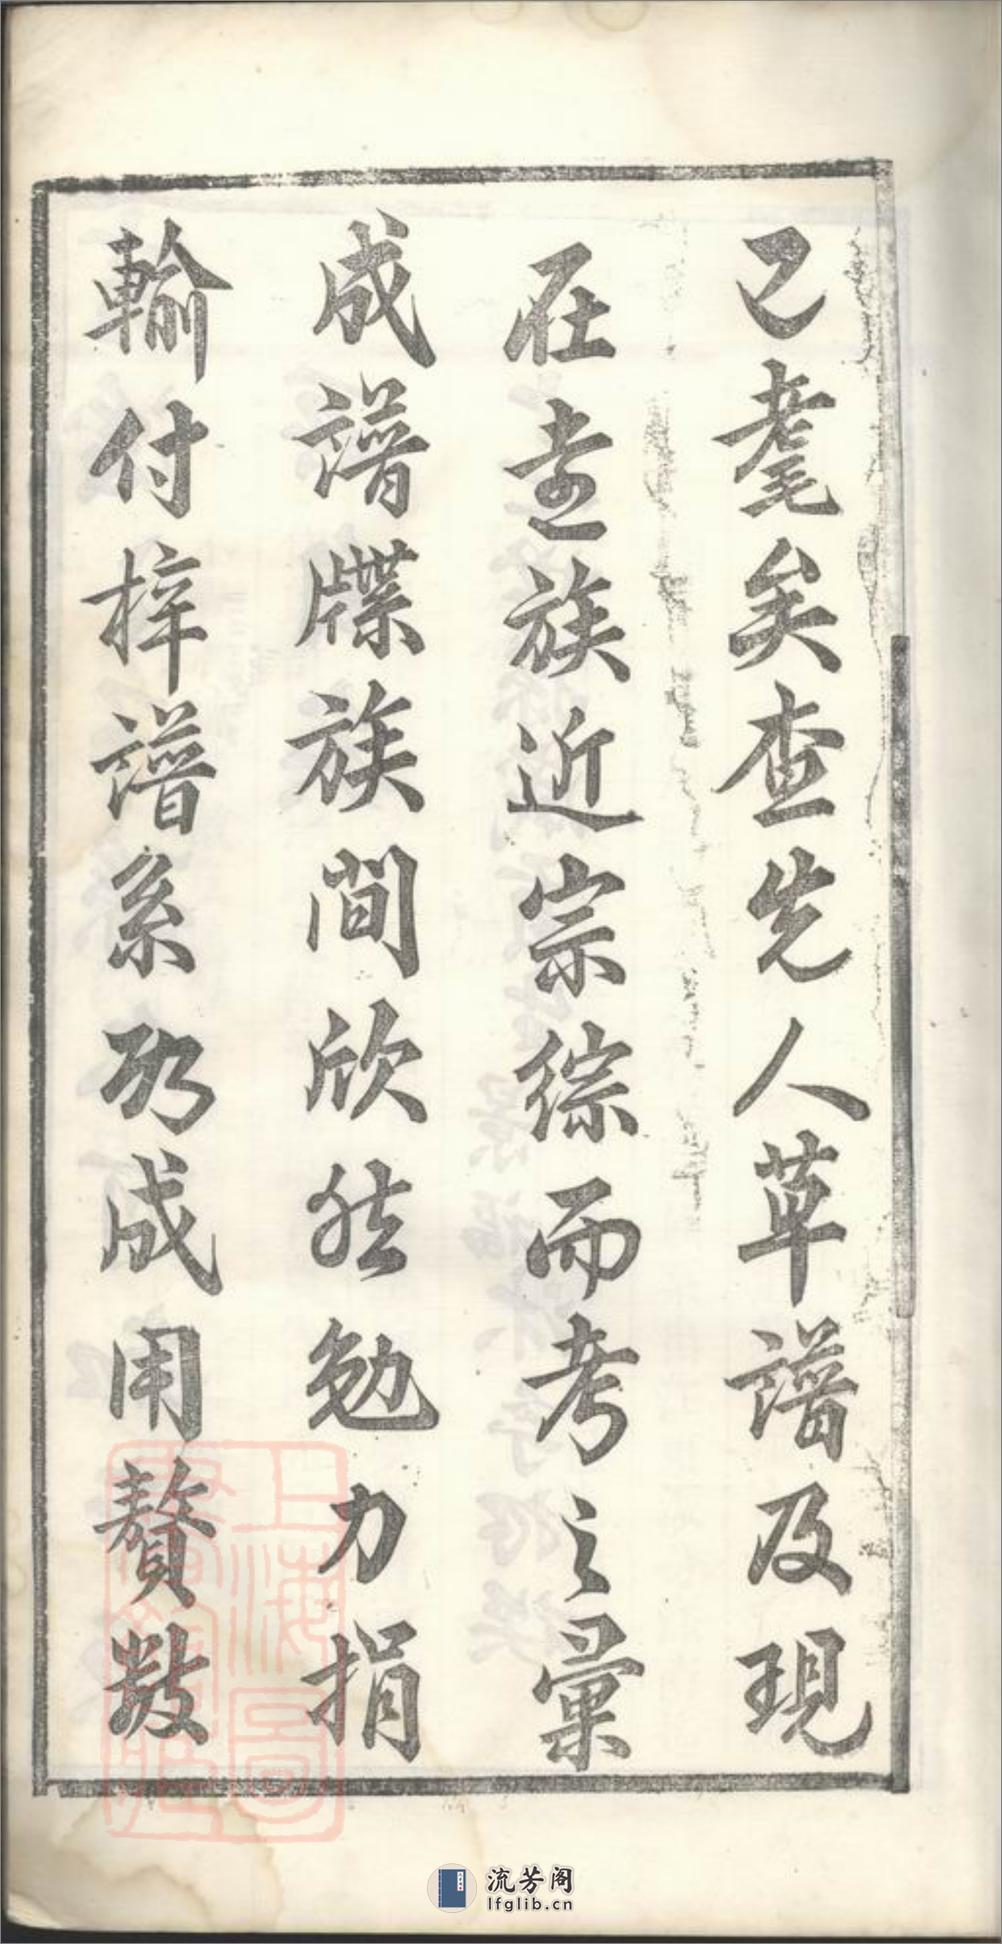 已耄矣查先人草譜及現
在遠族近宗綜而考之彙
成譜牒族間欣然勉力捐
輸付梓譜系乃成用贅數
上海圖書館藏
流芳阁
lfglib.cn